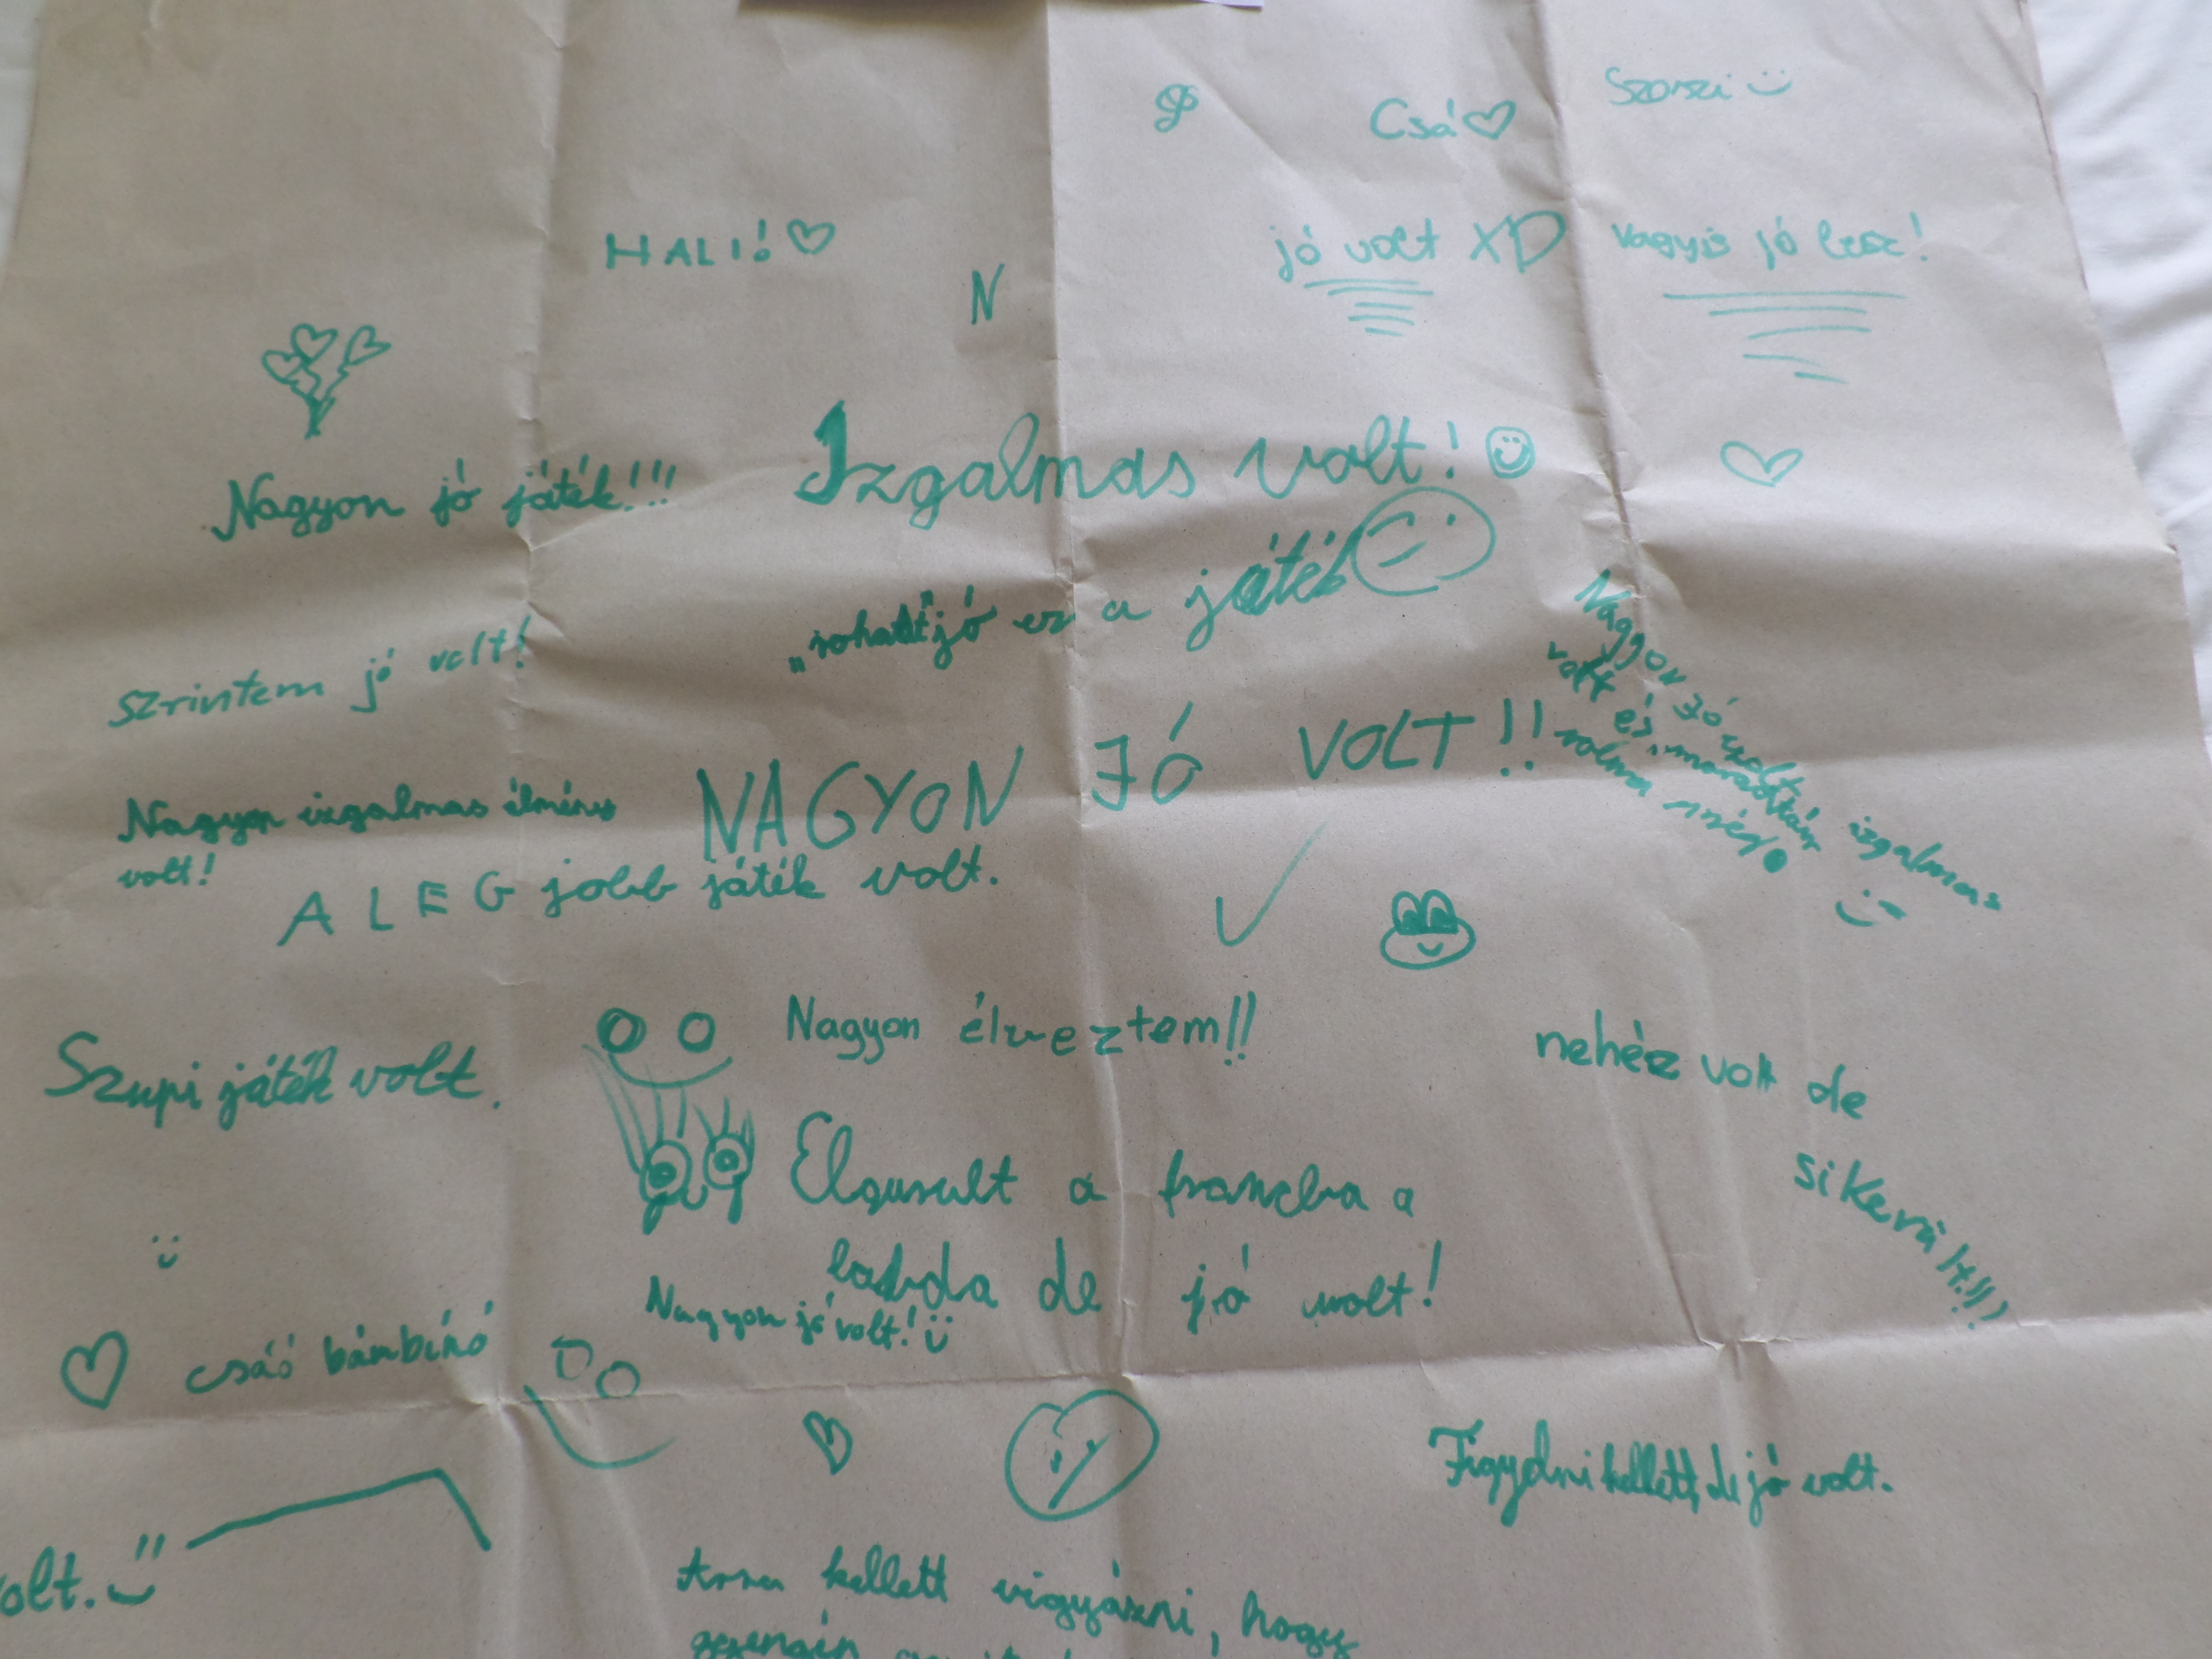 Csá
Szoszi
HALI!
N
jó volt XD
vagyis jó lesz!
Nagyon jó játék!!!
Izgalmas volt!
"rohadt" jó ez a játék
Szrintem jó volt!
Nagyon jó volt
izgalmas
volt és
volna még!
NAGYON JÓ VOLT!!
Nagyon izgalmas élmény
volt!
A LEG jobb játék volt.
Nagyon élveztem!!
nehéz volt de
sikerült!!!
Szupi játék volt.
Elgurult a francba a
labda de jó volt!
Nagyon jó volt!
csáó bámbínó
Figyelni kellett, de jó volt.
olt.
Arra kellett vigyázni, hogy